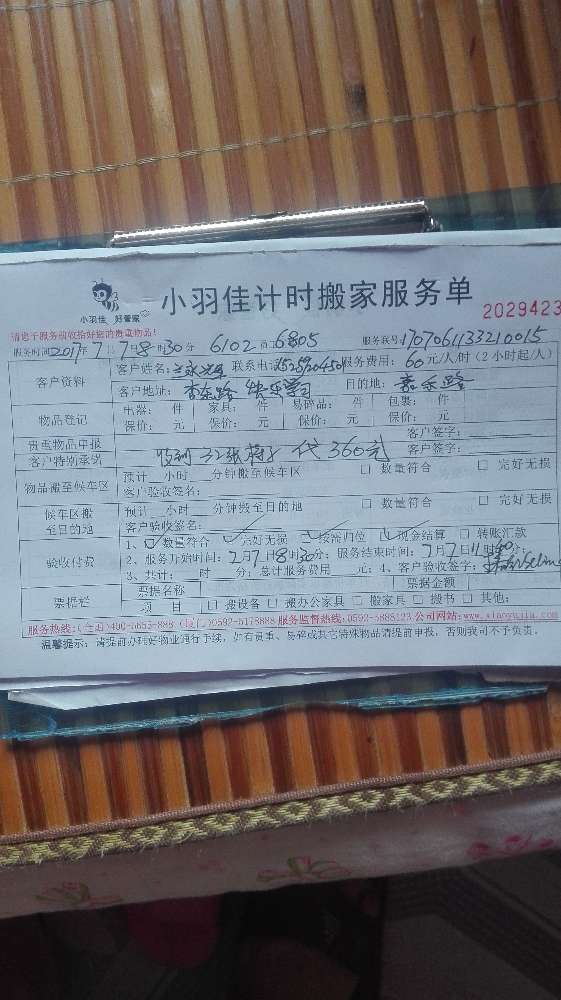 小羽佳 好管家
小羽佳计时搬家服务单
2029423
请您于服务前收拾好您的贵重物品!
服务时间2017年7月7日8时30分 6102 6805 服务联号1707061133210015
客户资料 客户姓名: 联系电话 服务费用: 60元/人/时 (2小时起/人)
客户地址: 目的地:
物品登记 电器: 件 家具: 件 易碎品: 件 包裹: 件
保价: 元 保价: 元 保价: 元 保价: 元
贵重物品申报 客户签字:
客户特别承诺 收到 代 360元 客户签字:
物品搬至候车区 预计__小时__分钟搬至候车区 □ 数量符合 □ 完好无损
客户验收签名:
候车区搬至目的地 预计__小时__分钟搬至目的地 □ 数量符合 □ 完好无损
客户验收签名:
验收付费 1、☑数量符合 ☑完好无损 ☑按需归位 ☑现金结算 □ 转账汇款
2、服务开始时间:7月7日8时30分; 服务结束时间:7月7日11时
3、共计: 时__分; 总计服务费用__元; 4、客户验收签字:
票据栏 票据名称 票据金额
项 目 □ 搬设备 □ 搬办公家具 □ 搬家具 □ 搬书 □ 其他:
服务热线: 0592-5178888 服务监督热线:0592-5888123 公司网站:www.xiaoyujia.com
温馨提示: 请提前办理好物业通行手续, 如有贵重、易碎或其它特殊物品请提前申报, 否则我司不予负责。